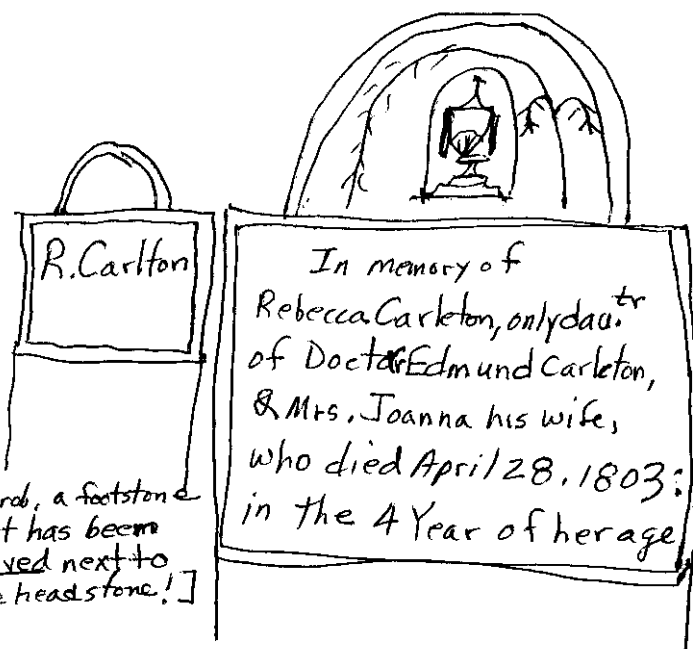 R. Carlton
In memory of
Rebecca Carleton, only dau.tr
of Doctor Edmund Carleton,
& Mrs. Joanna his wife,
who died April 28. 1803:
in the 4 Year of her age
rob, a footstone
t has been
ved next to
e headstone!]